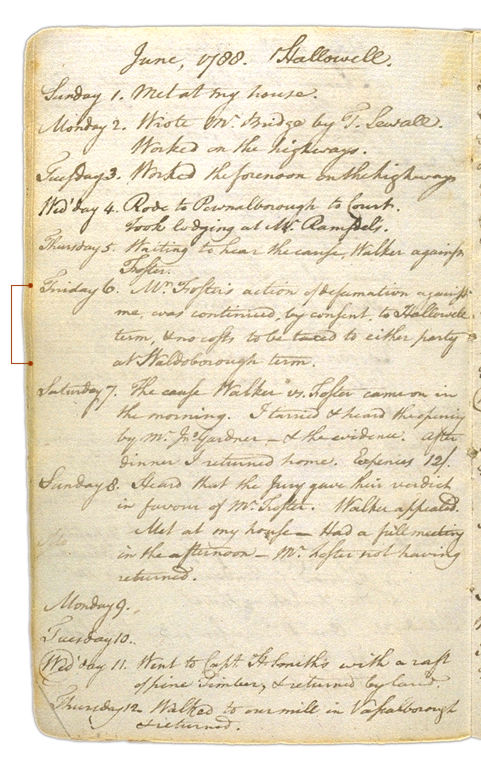 June, 1788. Hallowell.
Sunday 1. Met at my house.
Monday 2. Wrote Mr. Bridge by T. Sewall.
Worked on the highways.
Tuesday 3. Worked the forenoon on the highways
Wed'day 4. Rode to Pownalborough to Court.
Took lodging at Mr. Ramsdel's.
Thursday 5. Waiting to hear the cause, Walker against
Foster.
Friday 6. Mr. Foster's action of defamation against
me, was continued, by consent, to Hallowell
term, & no costs to be taxed to either party
at Waldoborough term.
Saturday 7. The cause Walker vs. Foster came on in
the morning. I tarried & heard the opening
by Mr. Jno. Gardner – & the evidence. After
dinner I returned home. Expences 12/.
Sunday 8. Heard that the Jury gave their verdict
in favour of Mr. Foster. Walker appealed.
Met at my house – Had a full meeting
in the afternoon – Mr. Foster not having
returned.
Monday 9.
Tuesday 10.
Wed'day 11. Went to Capt. Smiths with a raft
of pine Timber, & returned by land.
Thursday 12. Walked to our mill in Vassalborough
& returned.